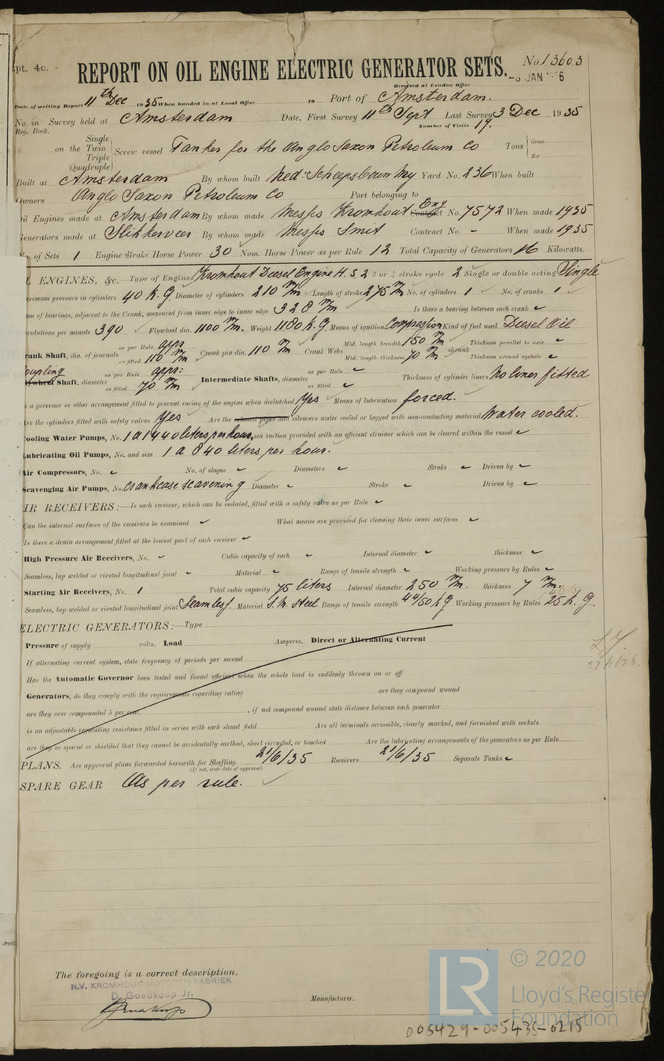 pt. 4c.
REPORT ON OIL ENGINE ELECTRIC GENERATOR SETS.
No. 13603
JAN
Received at London Office
Date of writing Report 11th Dec 1935 When handed in at Local Office 19 Port of Amsterdam.
No. in Survey held at Amsterdam Date, First Survey 11th Sept Last Survey 3 Dec 1935
Reg. Book. Number of Visits 17.
on the Single Twin Triple Quadruple Screw vessel Tanker for the Anglo Saxon Petroleum Co Tons Gross Net
Built at Amsterdam By whom built Ned. Scheepsbouw My Yard No. 236 When built
Owners Anglo Saxon Petroleum Co Port belonging to
Oil Engines made at Amsterdam By whom made Messrs Kromhout Contract Eng No. 7572 When made 1935
Generators made at Slikkerveer By whom made Messrs Smit Contract No. - When made 1935
No. of Sets 1 Engine Brake Horse Power 30 Nom. Horse Power as per Rule 12 Total Capacity of Generators 16 Kilowatts.
OIL ENGINES, &c.—Type of Engines Kromhout Diesel Engine H.S.2 2 or 4 stroke cycle 2 Single or double acting Single
Maximum pressure in cylinders 40 k.g. Diameter of cylinders 210 m/m Length of stroke 275 m/m No. of cylinders 1 No. of cranks 1
Span of bearings, adjacent to the Crank, measured from inner edge to inner edge 328 m/m Is there a bearing between each crank ✓
Revolutions per minute 390 Flywheel dia. 1100 m/m. Weight 1180 k.g. Means of ignition Compression Kind of fuel used Diesel Oil
Crank Shaft, dia. of journals as per Rule appr as fitted 110 m/m Crank pin dia. 110 m/m Crank Webs Mid. length breadth 150 m/m Mid. length thickness 70 m/m shrunk Thickness parallel to axis ✓ Thickness around eyehole ✓
Coupling Flywheel Shaft, diameter as per Rule appr: as fitted 70 m/m Intermediate Shafts, diameter as per Rule ✓ as fitted ✓ Thickness of cylinder liners No liner fitted
Is a governor or other arrangement fitted to prevent racing of the engine when declutched Yes Means of lubrication forced.
Are the cylinders fitted with safety valves Yes Are the exhaust pipes and silencers water cooled or lagged with non-conducting material Water cooled.
Cooling Water Pumps, No. 1 a 1440 liters per hour, sea suction provided with an efficient strainer which can be cleared within the vessel ✓
Lubricating Oil Pumps, No. and size 1 a 840 liters per hour.
Air Compressors, No. ✓ No. of stages ✓ Diameters ✓ Stroke ✓ Driven by ✓
Scavenging Air Pumps, No. crankcase scavening Diameter ✓ Stroke ✓ Driven by ✓
AIR RECEIVERS:—Is each receiver, which can be isolated, fitted with a safety valve as per Rule ✓
Can the internal surfaces of the receivers be examined ✓ What means are provided for cleaning their inner surfaces ✓
Is there a drain arrangement fitted at the lowest part of each receiver ✓
High Pressure Air Receivers, No. ✓ Cubic capacity of each ✓ Internal diameter ✓ thickness ✓
Seamless, lap welded or riveted longitudinal joint ✓ Material ✓ Range of tensile strength ✓ Working pressure by Rules ✓
Starting Air Receivers, No. 1 Total cubic capacity 75 liters Internal diameter 250 m/m. thickness 7 m/m.
Seamless, lap welded or riveted longitudinal joint Seamless Material S.M. Steel Range of tensile strength 44/50 k.g Working pressure by Rules 25 k.g.
ELECTRIC GENERATORS:—Type
Pressure of supply volts. Load Amperes. Direct or Alternating Current
If alternating current system, state frequency of periods per second
Has the Automatic Governor been tested and found efficient when the whole load is suddenly thrown on or off
Generators, do they comply with the requirements regarding rating are they compound wound
are they over compounded 5 per cent. , if not compound wound state distance between each generator
is an adjustable regulating resistance fitted in series with each shunt field Are all terminals accessible, clearly marked, and furnished with sockets
are they so spaced or shielded that they cannot be accidentally earthed, short circuited, or touched Are the lubricating arrangements of the generators as per Rule
PLANS. Are approved plans forwarded herewith for Shafting 21/6/35 Receivers 21/6/35 Separate Tanks ✓
(If not, state date of approval)
SPARE GEAR As per rule.
The foregoing is a correct description,
N.V. KROMHOUT MOTOREN FABRIEK
D. Goedkoop Jr.
Manufacturer.
LR
© 2020
Lloyd's Register
Foundation
005429-005435-0215